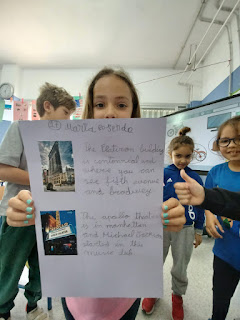 The Flatiron building
is centennial and
where you can
see fifth avenue
and broadway
The apollo theather
is in manhattan
and Michael Jackson
started in this